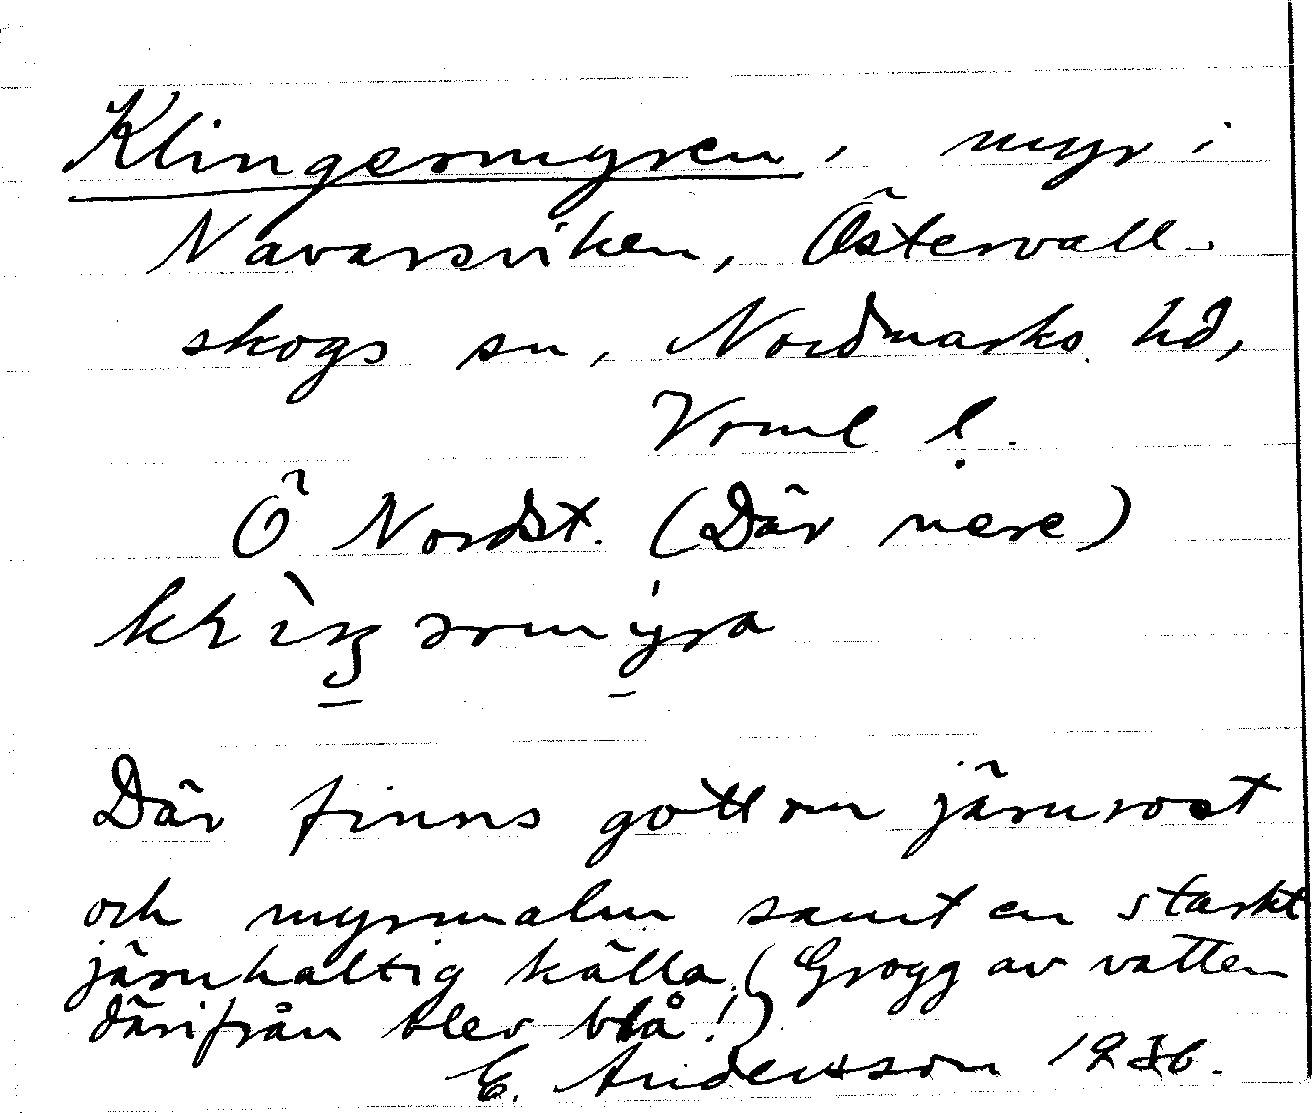 Klingermyren, myr i
Navarsviken, Östervall-
skogs sn, Nordmarks hd,
Vrml l.
Ö Nordst. (Där nere)
Där finns gott om järnrost
och myrmalm samt en starkt
järnhaltig källa. (Grogg av vatten
därifrån blev blå!)
E. Andersson